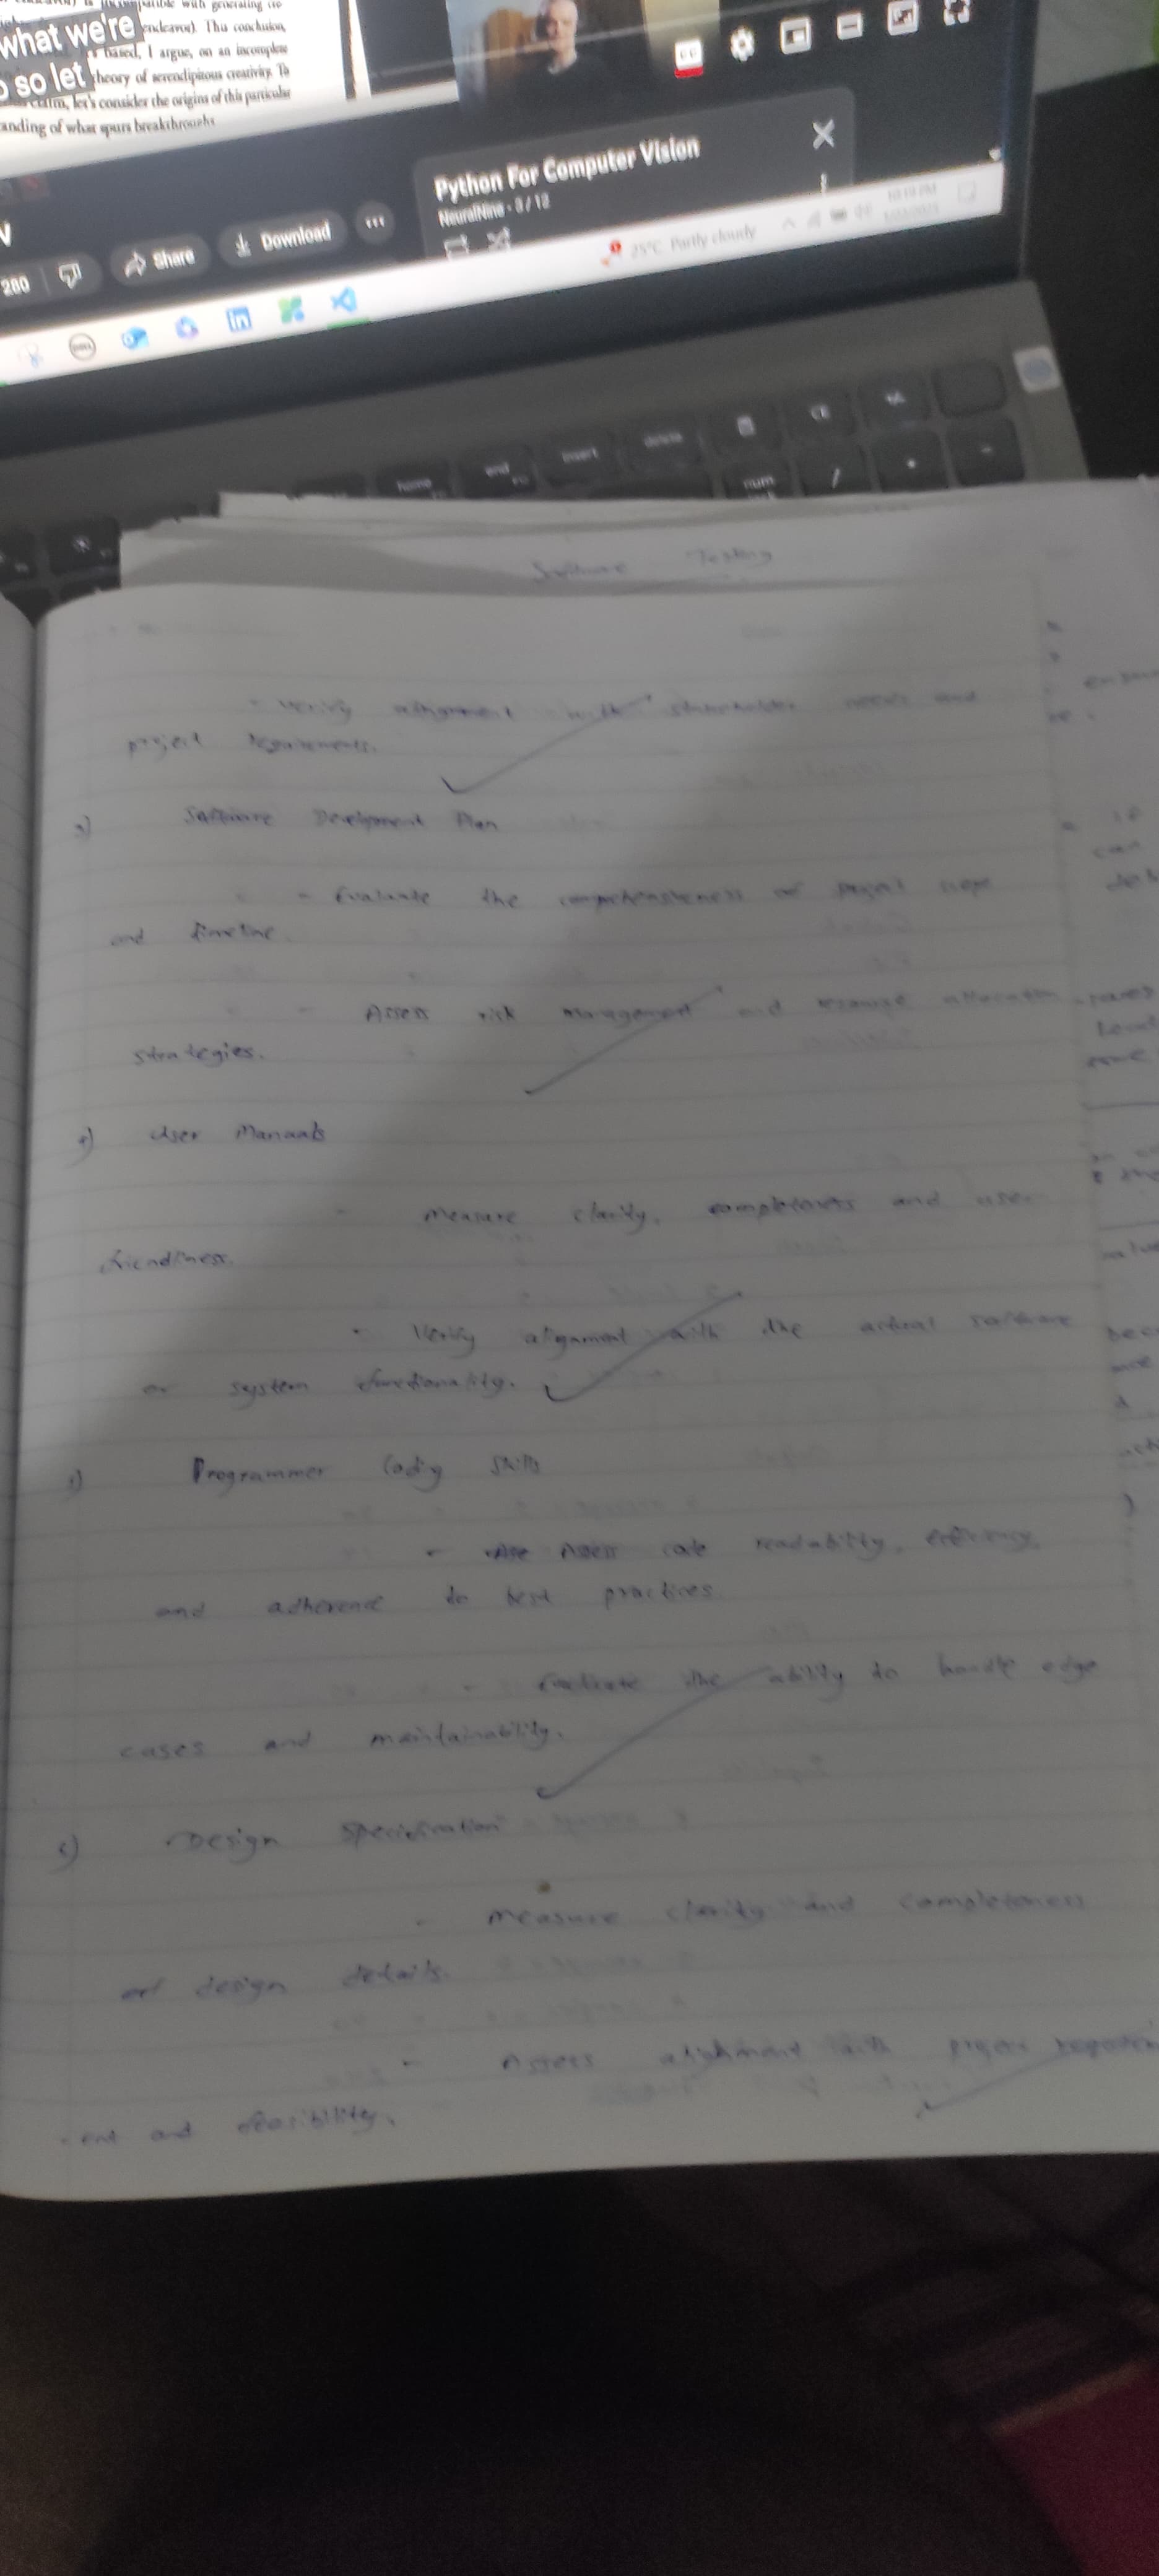 what we're
so let
endeavor). This conclusion,
based, I argue, on an incomplete
theory of serendipitous creativity. To
claim, let's consider the origins of this particular
anding of what spurs breakthroughs
Python For Computer Vision
NeuralNine - 3 / 13
280 Share Download
25°C Partly cloudy
home end insert delete
num
Software Testing
- Verify alignment with stakeholder needs and
project requirements.
3) Software Development Plan
- Evaluate the comprehensiveness of project scope
and timeline.
- Assess risk management and resource allocation
strategies.
4) User Manuals
- Measure clarity, completeness and user
friendliness.
- Verify alignment with the actual software
or system functionality.
5) Programmer Coding Skills
- Assess code readability, efficiency,
and adherence to best practices.
- Evaluate the ability to handle edge
cases and maintainability.
6) Design Specification
- Measure clarity and completeness
of design details.
- Assess alignment with project
and feasibility.